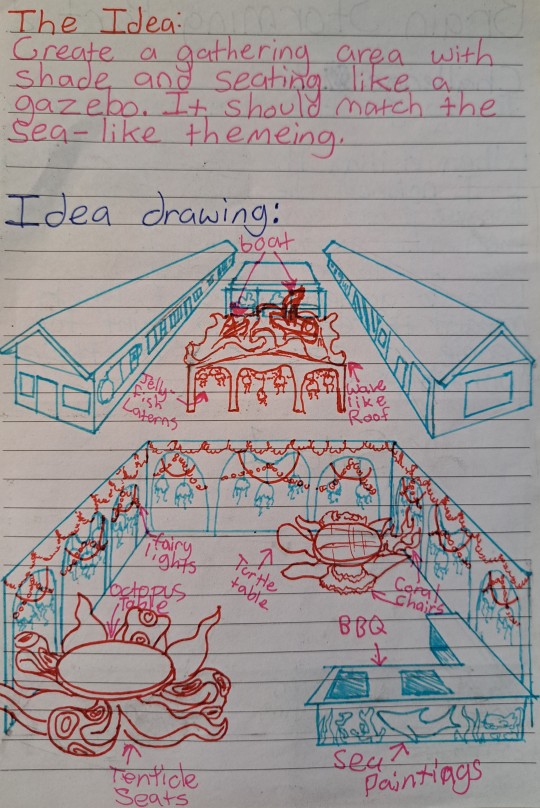 The Idea:
Create a gathering area with
shade and seating like a
gazebo. It should match the
Sea-like themeing.
Idea drawing:
boat
Jelly-
fish
Laterns
wave
like
Roof
fairy
lights
Turtle
table
Coral
Chairs
Octopus
Table
BBQ
Tenticle
Seats
Sea
Paintings